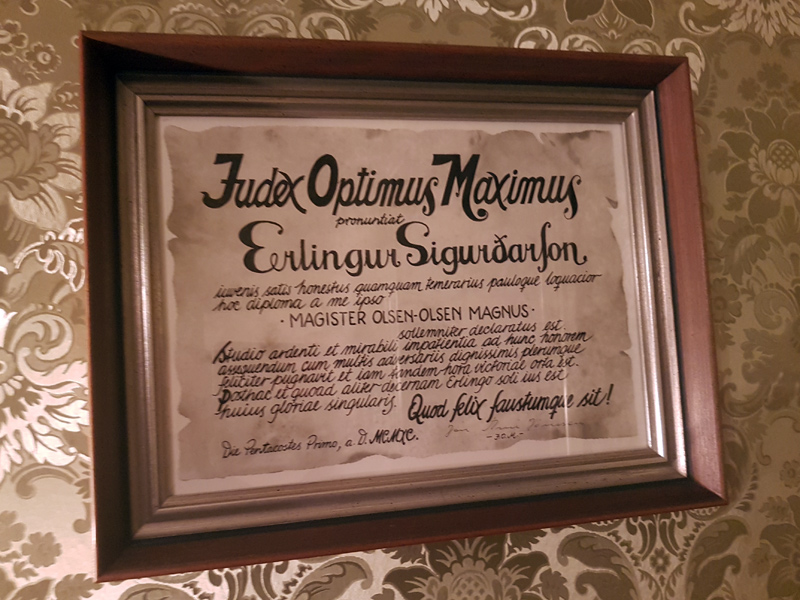 Judex Optimus Maximus
pronuntiat
Erlingur Sigurðarſon,
iuvenis satis honestus quamquam temerarius pauloque loquacior
hoc diploma a me ipso
· MAGISTER OLSEN-OLSEN MAGNUS ·
sollemniter declaratus est.
Studio ardenti et mirabili impatientia ad hunc honorem
assequendum cum multis adversariis dignissimis plerumque
feliciter pugnavit et iam tandem hora victoriae orta est.
Posthac et quoad aliter decernam Erlingo soli ius est
huius gloriae singularis. Quod felix faustumque sit!
Die Pentecostes Primo, a. D. MCMXC.